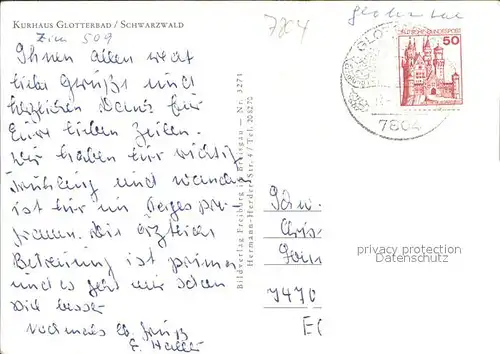 7804
KURHAUS GLOTTERBAD / SCHWARZWALD
Zim 509
Ihnen allen recht
liebe Grüße und
herzlichen Dank für
Eure lieben Zeilen.
Wir haben hier richtig
Frühling und wandern
ist für uns Tagespro-
gramm. Die ärztliche
Betreuung ist prima
und es geht mir schon
viel besser
nochmals lb. Grüße
E.
Bildverlag Freiburg i. Breisgau — Nr. 3271
Hermann-Herder-Str. 4 / Tel. 208270
GLOT
7804
DEUTSCHE BUNDESPOST
50
Schw.
Chris
7470
privacy protection
Datenschutz